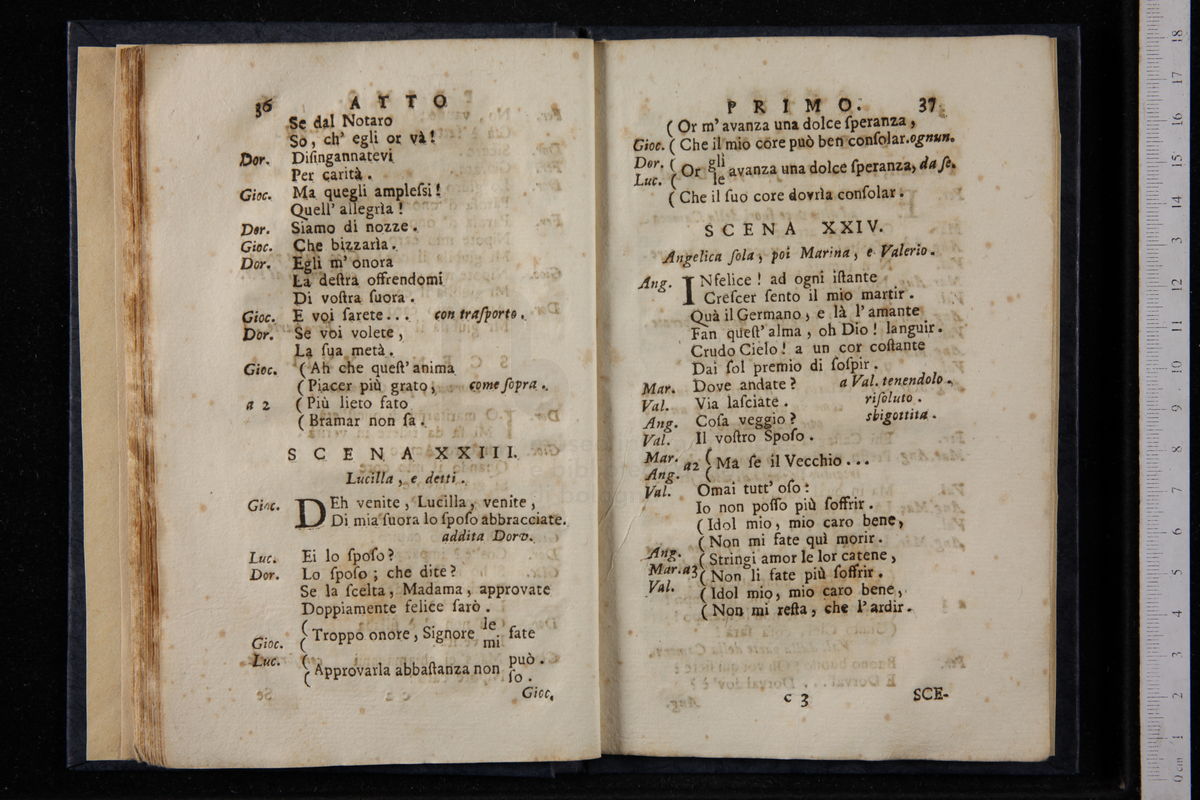 36 ATTO
Se dal Notaro
So, ch' egli or và!
Dor. Disingannatevi
Per carità.
Gioc. Ma quegli amplessi!
Quell' allegrìa!
Dor. Siamo di nozze.
Gioc. Che bizzarìa.
Dor. Egli m' onora
La destra offrendomi
Di vostra suora.
Gioc. E voi sarete... con trasporto.
Dor. Se voi volete,
La sua metà.
Gioc. (Ah che quest' anima
(Piacer più grato, come sopra.
a 2 (Più lieto fato
(Bramar non sa.
SCENA XXIII.
Lucilla, e detti.
Gioc. DEh venite, Lucilla, venite,
Di mia suora lo sposo abbracciate.
addita Dorv.
Luc. Ei lo sposo?
Dor. Lo sposo; che dite?
Se la scelta, Madama, approvate
Doppiamente felice sarò.
Gioc. (Troppo onore, Signore le mi fate
Luc. (Approvarla abbastanza non può. so.
Gioc.
PRIMO. 37
(Or m' avanza una dolce speranza,
Gioc. (Che il mio core può ben consolar. ognun.
Dor. Luc. (Or gli le avanza una dolce speranza, da se.
(Che il suo core dovrìa consolar.
SCENA XXIV.
Angelica sola, poi Marina, e Valerio.
Ang. INfelice! ad ogni istante
Crescer sento il mio martir.
Quà il Germano, e là l' amante
Fan quest' alma, oh Dio! languir.
Crudo Cielo! a un cor costante
Dai sol premio di sospir.
Mar. Dove andate? a Val. tenendolo.
Val. Via lasciate. risoluto.
Ang. Cosa veggio? sbigottita.
Val. Il vostro Sposo.
Mar. Ang. a2 (Ma se il Vecchio...
Val. Omai tutt' oso:
Io non posso più soffrir.
(Idol mio, mio caro bene,
(Non mi fate quì morir.
Ang. (Stringi amor le lor catene,
Mar. a3 (Non li fate più soffrir.
Val. (Idol mio, mio caro bene,
(Non mi resta, che l' ardir.
c 3 SCE-